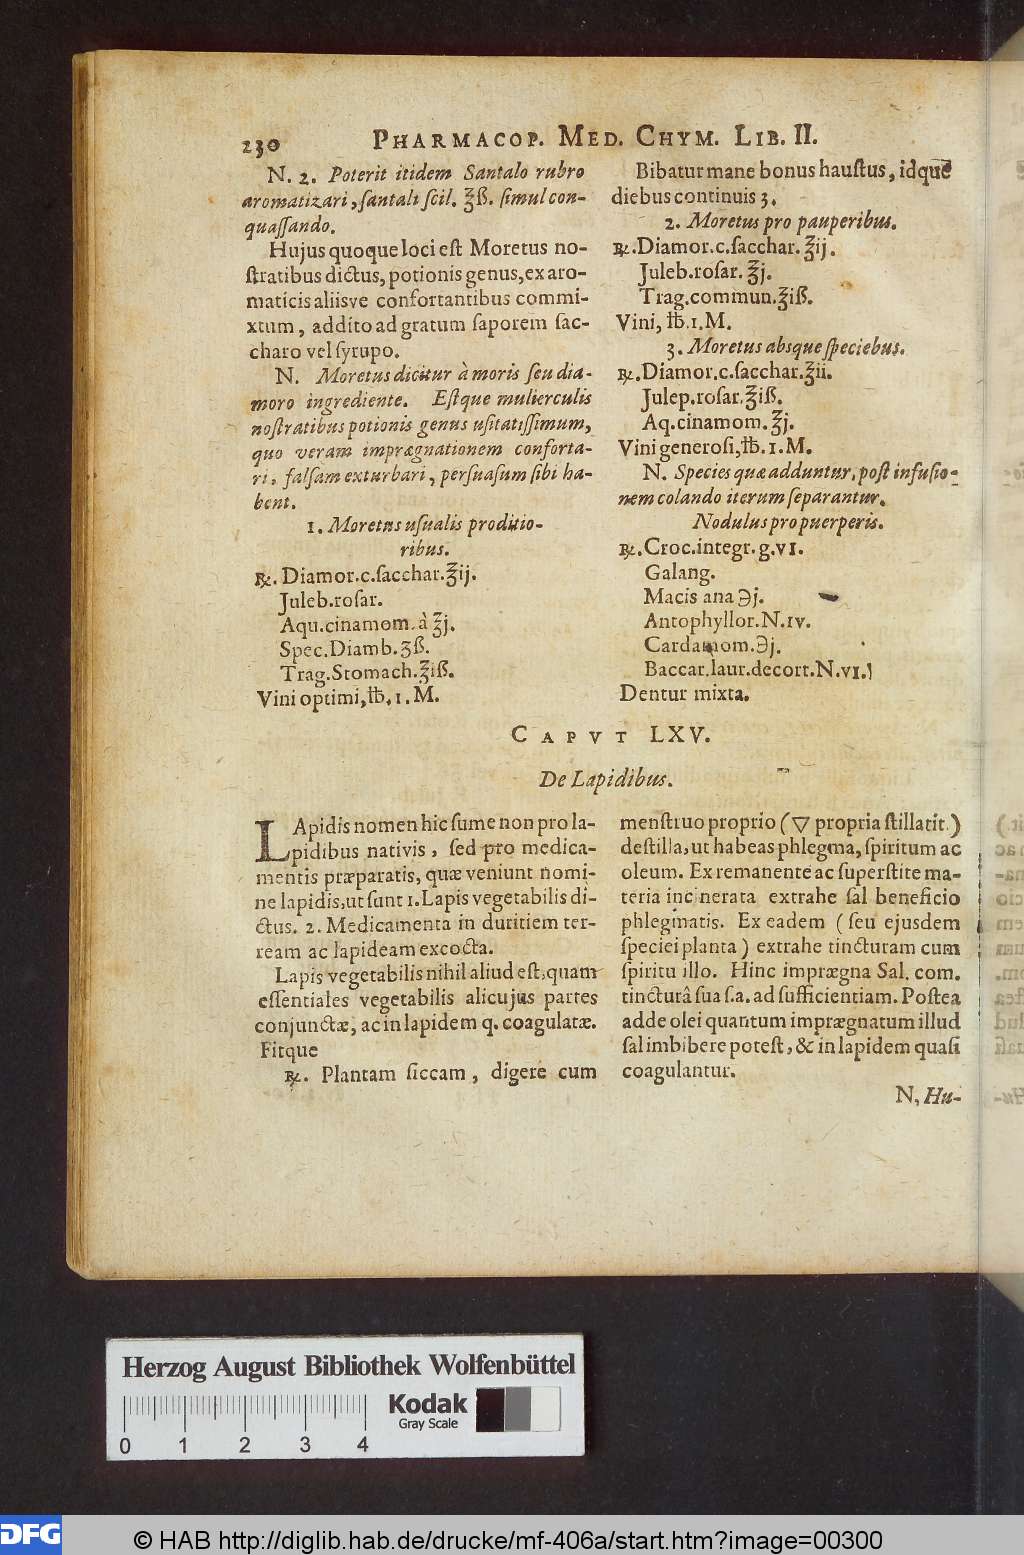 230 PHARMACOP. MED. CHYM. LIB. II.
N. 2. Poterit itidem Santalo rubro
aromatizari, ſantali ſcil. ℥ß. ſimul con-
quaſſando.
Hujus quoque loci eſt Moretus no-
ſtratibus dictus, potionis genus, ex aro-
maticis aliisve confortantibus commi-
xtum, addito ad gratum ſaporem ſac-
charo vel ſyrupo.
N. Moretus dicitur à moris ſeu dia-
moro ingrediente. Eſtque mulierculis
noſtratibus potionis genus uſitatiſſimum,
quo veram imprægnationem conforta-
ri, falſam exturbari, perſuaſum ſibi ha-
bent.
1. Moretus uſualis proditio-
ribus.
℞. Diamor. c. ſacchar. ℥ij.
Juleb. roſar.
Aqu. cinamom. à ℥j.
Spec. Diamb. ʒß.
Trag. Stomach. ℥iß.
Vini optimi, ℔. 1. M.
Bibatur mane bonus hauſtus, idque
diebus continuis 3.
2. Moretus pro pauperibus.
℞. Diamor. c. ſacchar. ℥ij.
Juleb. roſar. ℥j.
Trag. commun. ℥iß.
Vini, ℔. 1. M.
3. Moretus absque ſpeciebus.
℞. Diamor. c. ſacchar. ℥ii.
Julep. roſar. ℥iß.
Aq. cinamom. ℥j.
Vini generoſi, ℔. 1. M.
N. Species quæ adduntur, poſt infuſio-
nem colando iterum ſeparantur.
Nodulus pro puerperis.
℞. Croc. integr. g. VI.
Galang.
Macis ana ℈j.
Antophyllor. N. IV.
Cardamom. ℈j.
Baccar. laur. decort. N. VI.
Dentur mixta.
CAPVT LXV.
De Lapidibus.
LApidis nomen hic ſume non pro la-
pidibus nativis, ſed pro medica-
mentis præparatis, quæ veniunt nomi-
ne lapidis, ut ſunt 1. Lapis vegetabilis di-
ctus. 2. Medicamenta in duritiem ter-
ream ac lapideam excocta.
Lapis vegetabilis nihil aliud eſt, quam
eſſentiales vegetabilis alicujus partes
conjunctæ, ac in lapidem q. coagulatæ.
Fitque
℞. Plantam ſiccam, digere cum
menſtruo proprio (▽ propria ſtillatit.)
deſtilla, ut habeas phlegma, ſpiritum ac
oleum. Ex remanente ac ſuperſtite ma-
teria incinerata extrahe ſal beneficio
phlegmatis. Ex eadem (ſeu ejusdem
ſpeciei planta) extrahe tincturam cum
ſpiritu illo. Hinc imprægna Sal. com.
tincturâ ſua ſ. a. ad ſufficientiam. Poſtea
adde olei quantum imprægnatum illud
ſal imbibere poteſt, & in lapidem quaſi
coagulantur.
N, Hu-
Herzog August Bibliothek Wolfenbüttel
0 1 2 3 4
Kodak
Gray Scale
DFG
© HAB http://diglib.hab.de/drucke/mf-406a/start.htm?image=00300